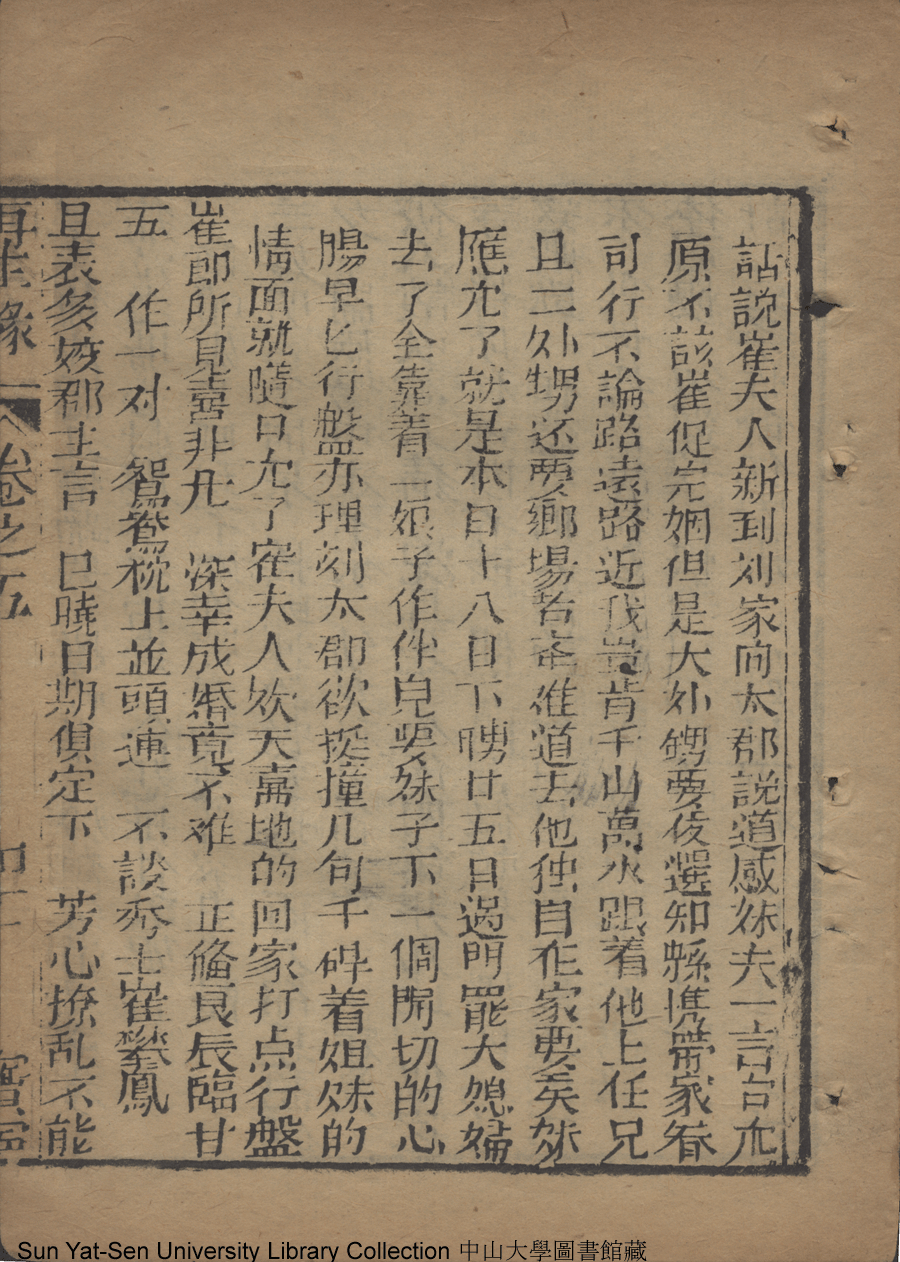 話説崔夫人新到刘家向太郡説道感妹夫一言台允
原不該崔促完姻但是大外甥要俟選知縣携帶家眷
司行不論路遠路近我豈肯千山萬水跟着他上任况
且二外甥还要鄉場台 难道去他独自在家要矣妹
應允了就是本日十八日下聘廿五日過門罷大媳婦
去了全靠着二娘子作伴兒要妹子下一個関切的心
腸早匕行盤亦理刻太郡欲挺撞几句千碍着姐妹的
情面就随口允了崔夫人欢天喜地的回家打点行盤
崔郎所見喜非凡　深幸成婚竟不难　正俻良辰臨廿
五　作一对　鴛鴦枕上並頭蓮　不談秀士崔攀鳳
且表多姣郡主言　已曉日期俱定下　芳心撩乱不能
再生緣　卷之五　四十　寳寧
Sun Yat-Sen University Library Collection 中山大學圖書館藏